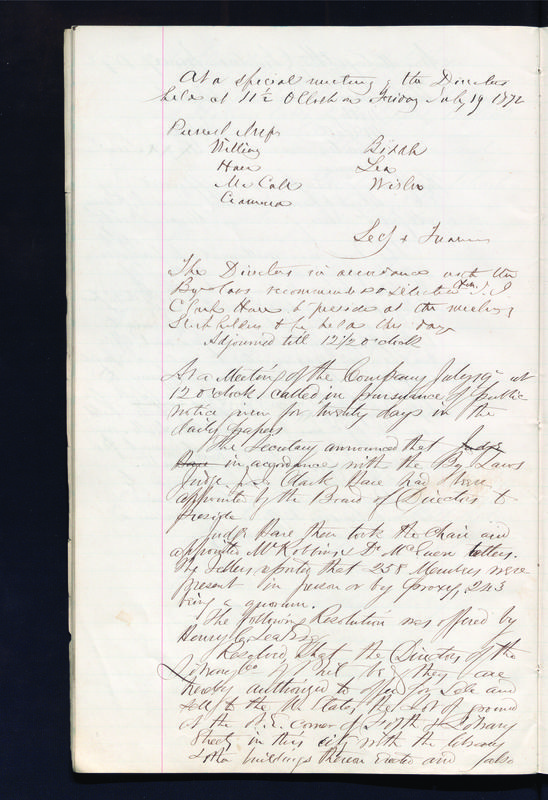 At a special meeting of the Directors
held at 11½ O'Clock on Friday July 19 1872
Present Messrs
Willing Biddle
Hare Lea
McCall Wister
Cramond
Secy & Treasurer
The Directors in accordance with the
By-Laws recommended & selected Hon. J. I.
Clark Hare to preside at the meeting
Stockholders to be held this day
Adjourned till 12/20 o'clock
At a Meeting of the Company July 19th at
12 o'clock called in pursuance of public
notice given for twenty days in the
daily papers
The Secretary announced that Judge
Hare in accordance with the By Laws
Judge Clark Hare had been
appointed by the Board of Directors to
preside
Judge Hare then took the Chair and
appointed Mr Robbins & Dr McEuen tellers.
The tellers reported that 258 Members were
present in person or by proxy, 243
being a quorum.
The following Resolution was offered by
Henry C Lea Esq
Resolved, That the Directors of the
Library Co of Phil be & they are
hereby authorized to offer for Sale and
sell to the U. States the Lot of ground
at the N.E. corner of Fifth & Library
Streets in this city with the library
& other buildings thereon erected and also